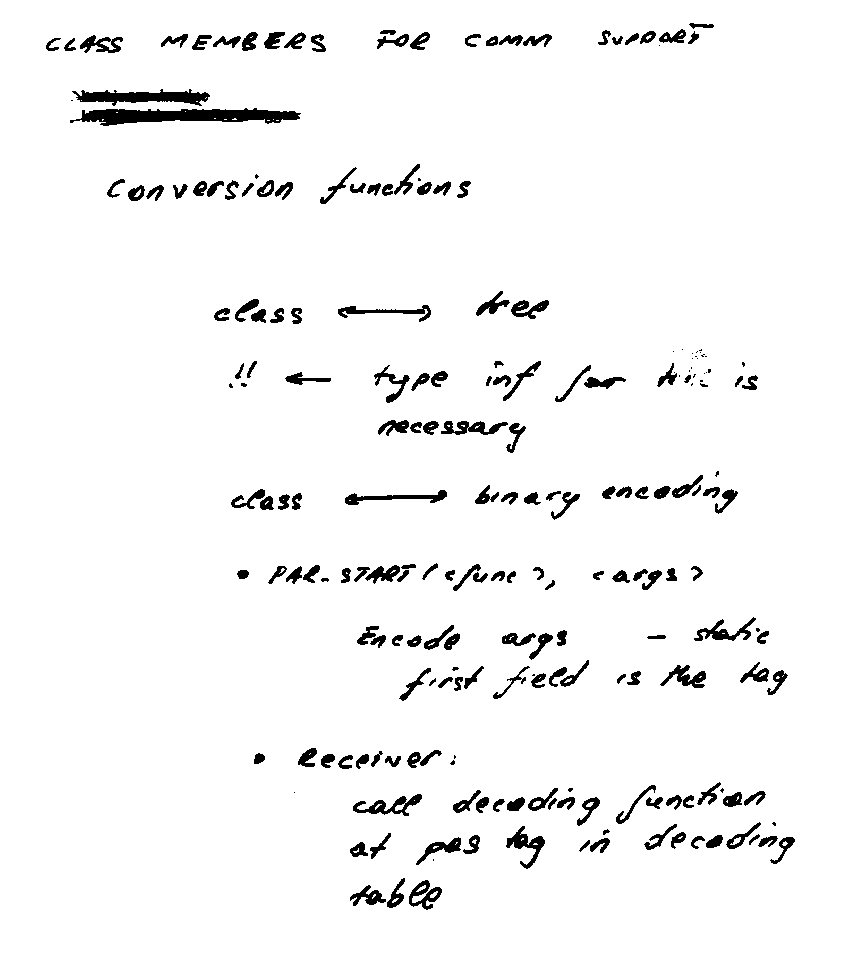 CLASS MEMBERS FOR COMM SUPPORT
Conversion functions
class ⟷ tree
!! ← type inf for is
necessary
class ⟷ binary encoding
• PAR_START(<func>, <args>
Encode args – static
first field is the tag
• Receiver:
call decoding function
at pos tag in decoding
table